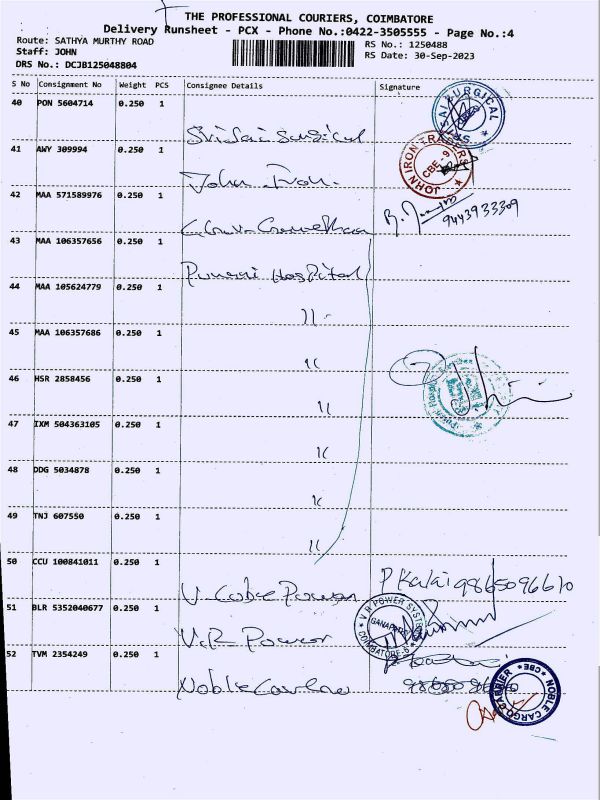 THE PROFESSIONAL COURIERS, COIMBATORE
Delivery Runsheet - PCX - Phone No.:0422-3505555 - Page No.:4
Route: SATHYA MURTHY ROAD
Staff: JOHN
DRS No.: DCJB125048804
RS No.: 1250488
RS Date: 30-Sep-2023
S No Consignment No Weight PCS Consignee Details Signature
40 PON 5604714 0.250 1
Sri Sai Surgical
SRI SAI SURGICAL
41 AWY 309994 0.250 1
John Iron.
JOHN IRON TRADERS
CBE-9
42 MAA 571589976 0.250 1
9443933309
43 MAA 106357656 0.250 1
Hospital
44 MAA 105624779 0.250 1
45 MAA 106357686 0.250 1
46 HSR 2858456 0.250 1
47 IXM 504363105 0.250 1
48 DDG 5034878 0.250 1
49 TNJ 607550 0.250 1
50 CCU 100841011 0.250 1
P Kalai 9865096610
51 BLR 5352040677 0.250 1
V.R Power
V R POWER SYSTEM
GANAPATHY
COIMBATORE-6
52 TVM 2354249 0.250 1
Noble
NOBLE CARGO CARRIER
CBE